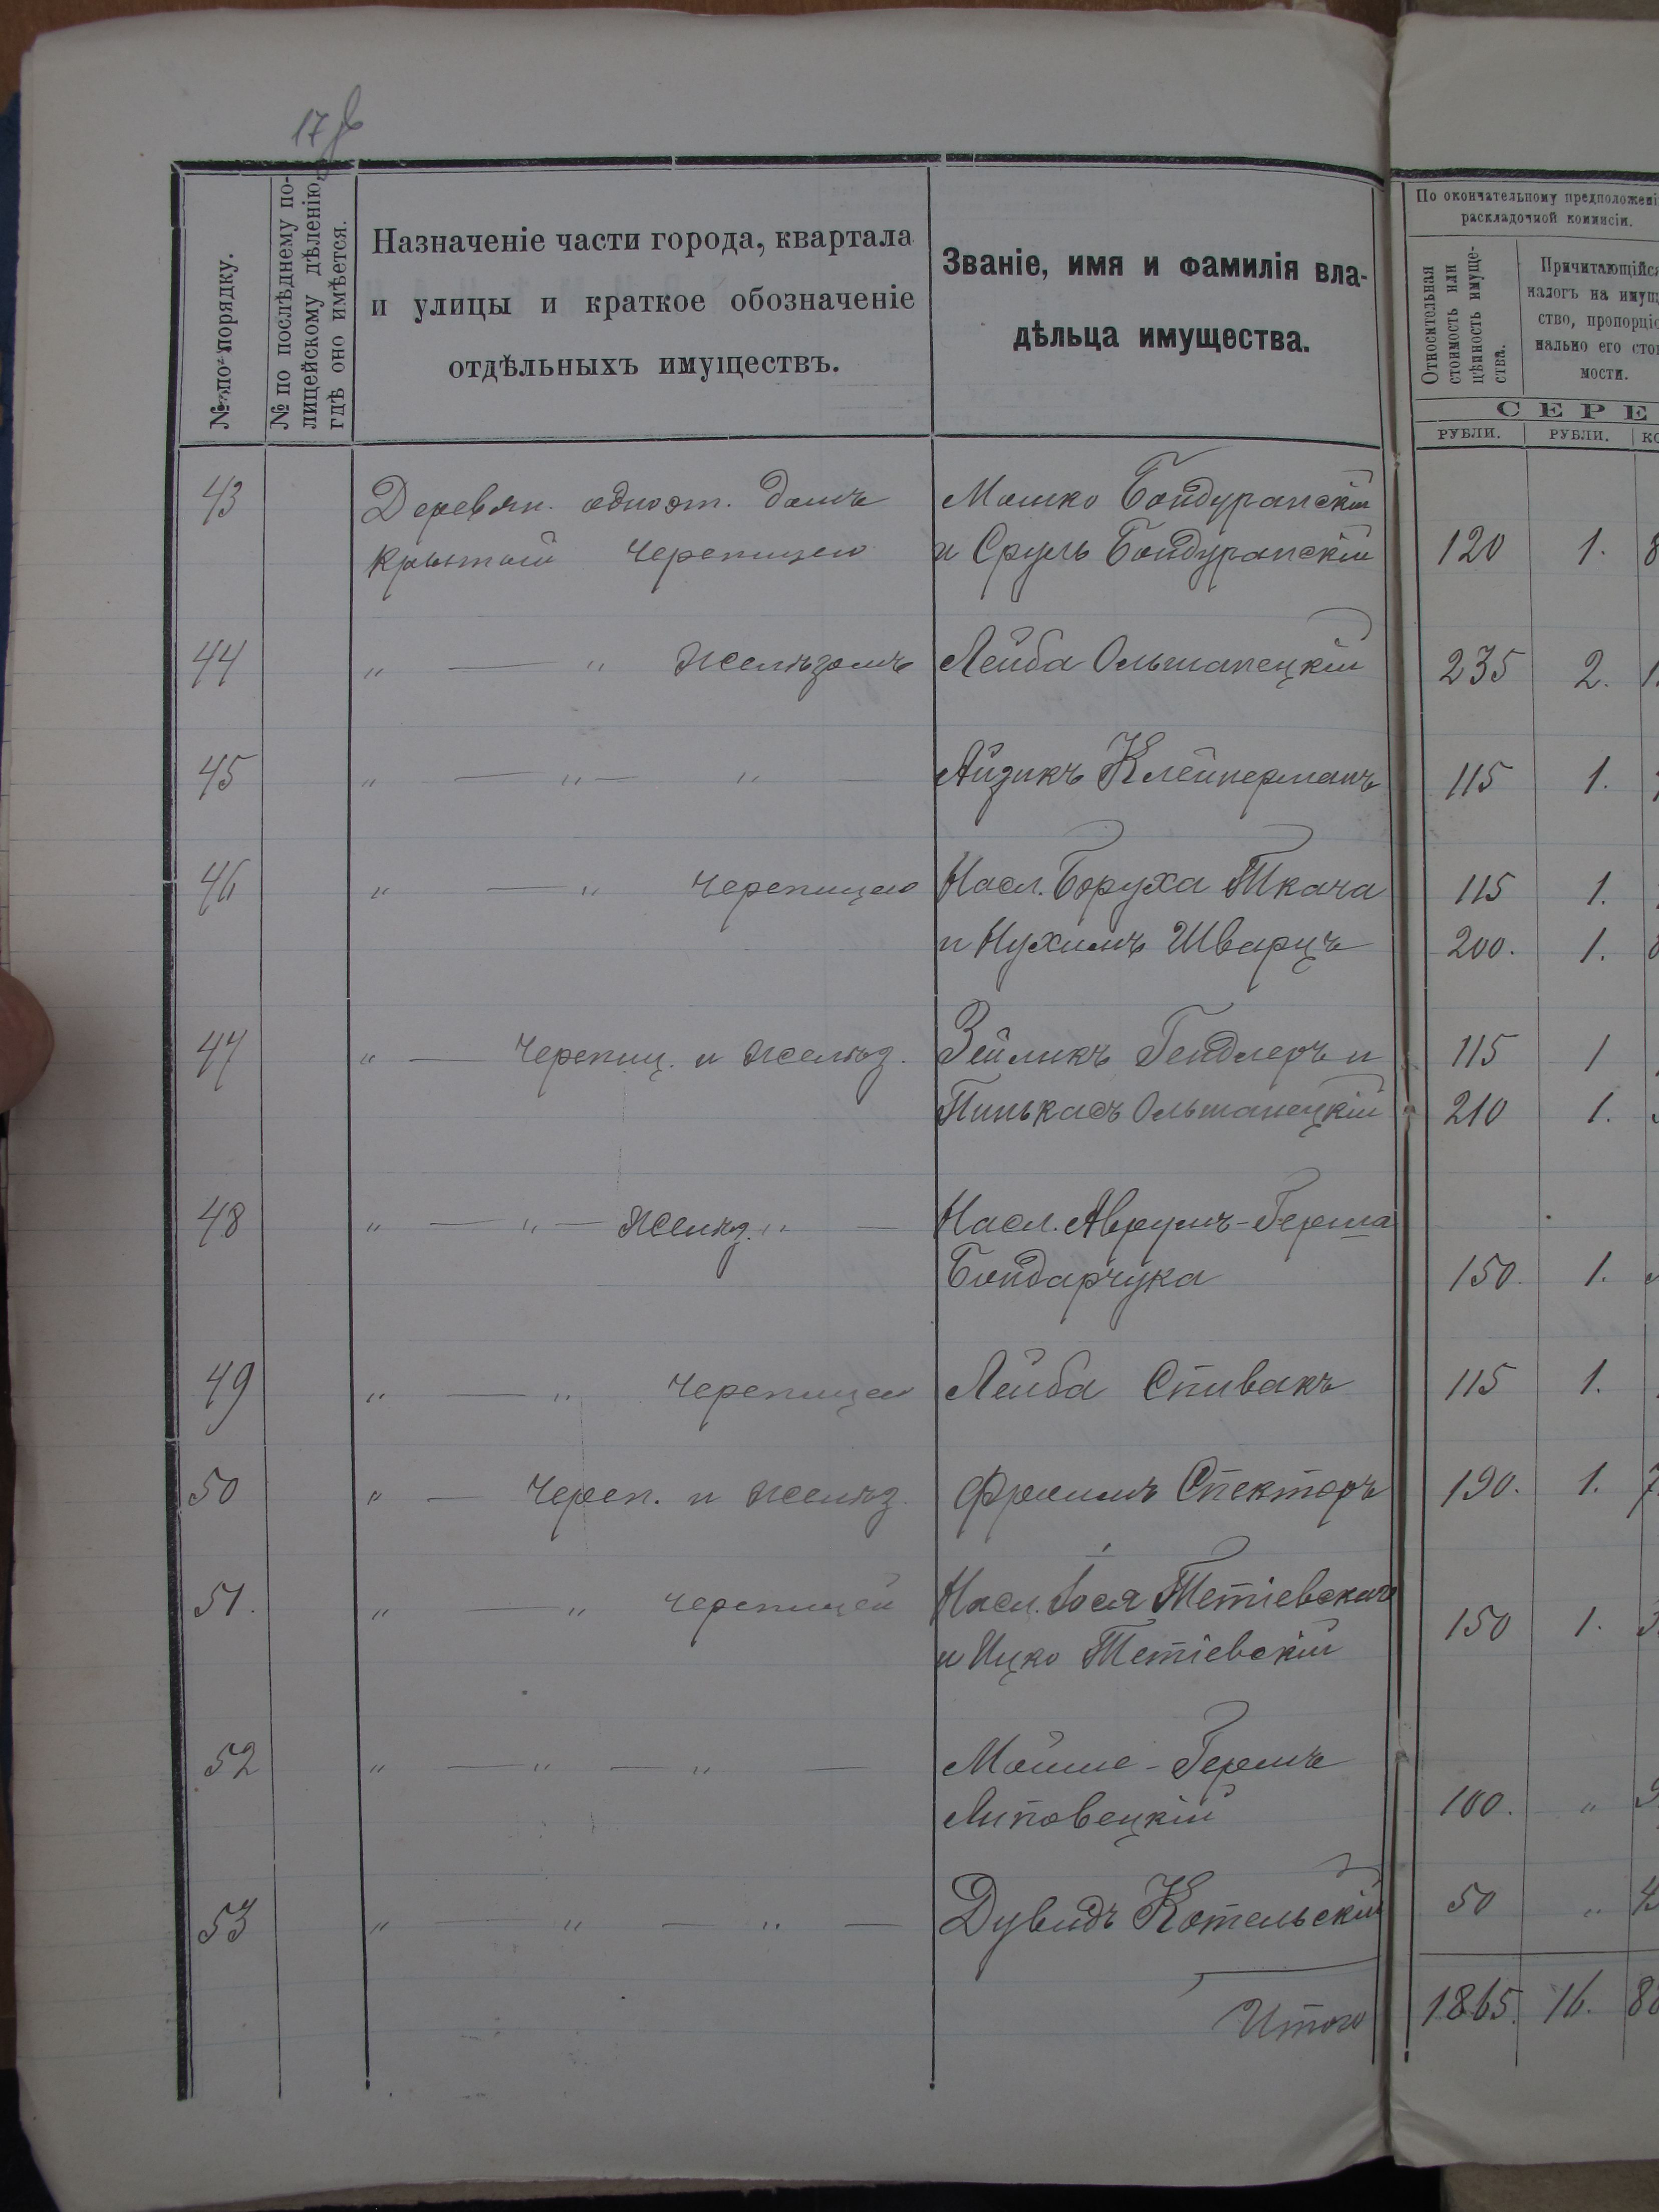 17 об
№ по порядку.
№ по послѣднему по-
лицейскому дѣленію,
гдѣ оно имѣется.
Назначеніе части города, квартала
и улицы и краткое обозначеніе
отдѣльныхъ имуществъ.
Званіе, имя и фамилія вла-
дѣльца имущества.
По окончательному предположені
раскладочной коммисіи.
Относительная
стоимость или
цѣнность имуще-
ства.
Причитающійся
налогъ на имущ
ство, пропорціо
нально его стои
мости.
СЕРЕ
РУБЛИ. РУБЛИ. КО
43 Деревян. одноэт. домъ Мошко Бондуранскій
крытый черепицею и Сруль Бондуранскій 120 1. 8
44 " — " желѣзомъ Лейба Ольшанецкій 235 2. 1
45 " — " — " — Айзикъ Клейнерманъ 115 1.
46 " — " черепицею Насл. Боруха Ткача 115 1.
и Нухимъ Шварцъ 200. 1. 8
47 " — Черепиц. и желѣз. Зейликъ Гендлеръ и 115 1
Пинькасъ Ольшанецкій 210 1.
48 " — " — Желѣз. " — Насл. Аврумъ-Герша
Бондарчука 150. 1.
49 " — " черепицею Лейба Спивакъ 115 1.
50 " — Череп. и желѣз. Фроимъ Спекторъ 190. 1. 7
51. " — " черепицей Насл. Іося Тетіевскаго
и Ицко Тетіевскій 150 1.
52 " — " — " — Мойше-Гершъ
Липовецкій 100. "
53 " — " — " — Дувидъ Котельскій 50 " 4
Итого 1865. 16. 8